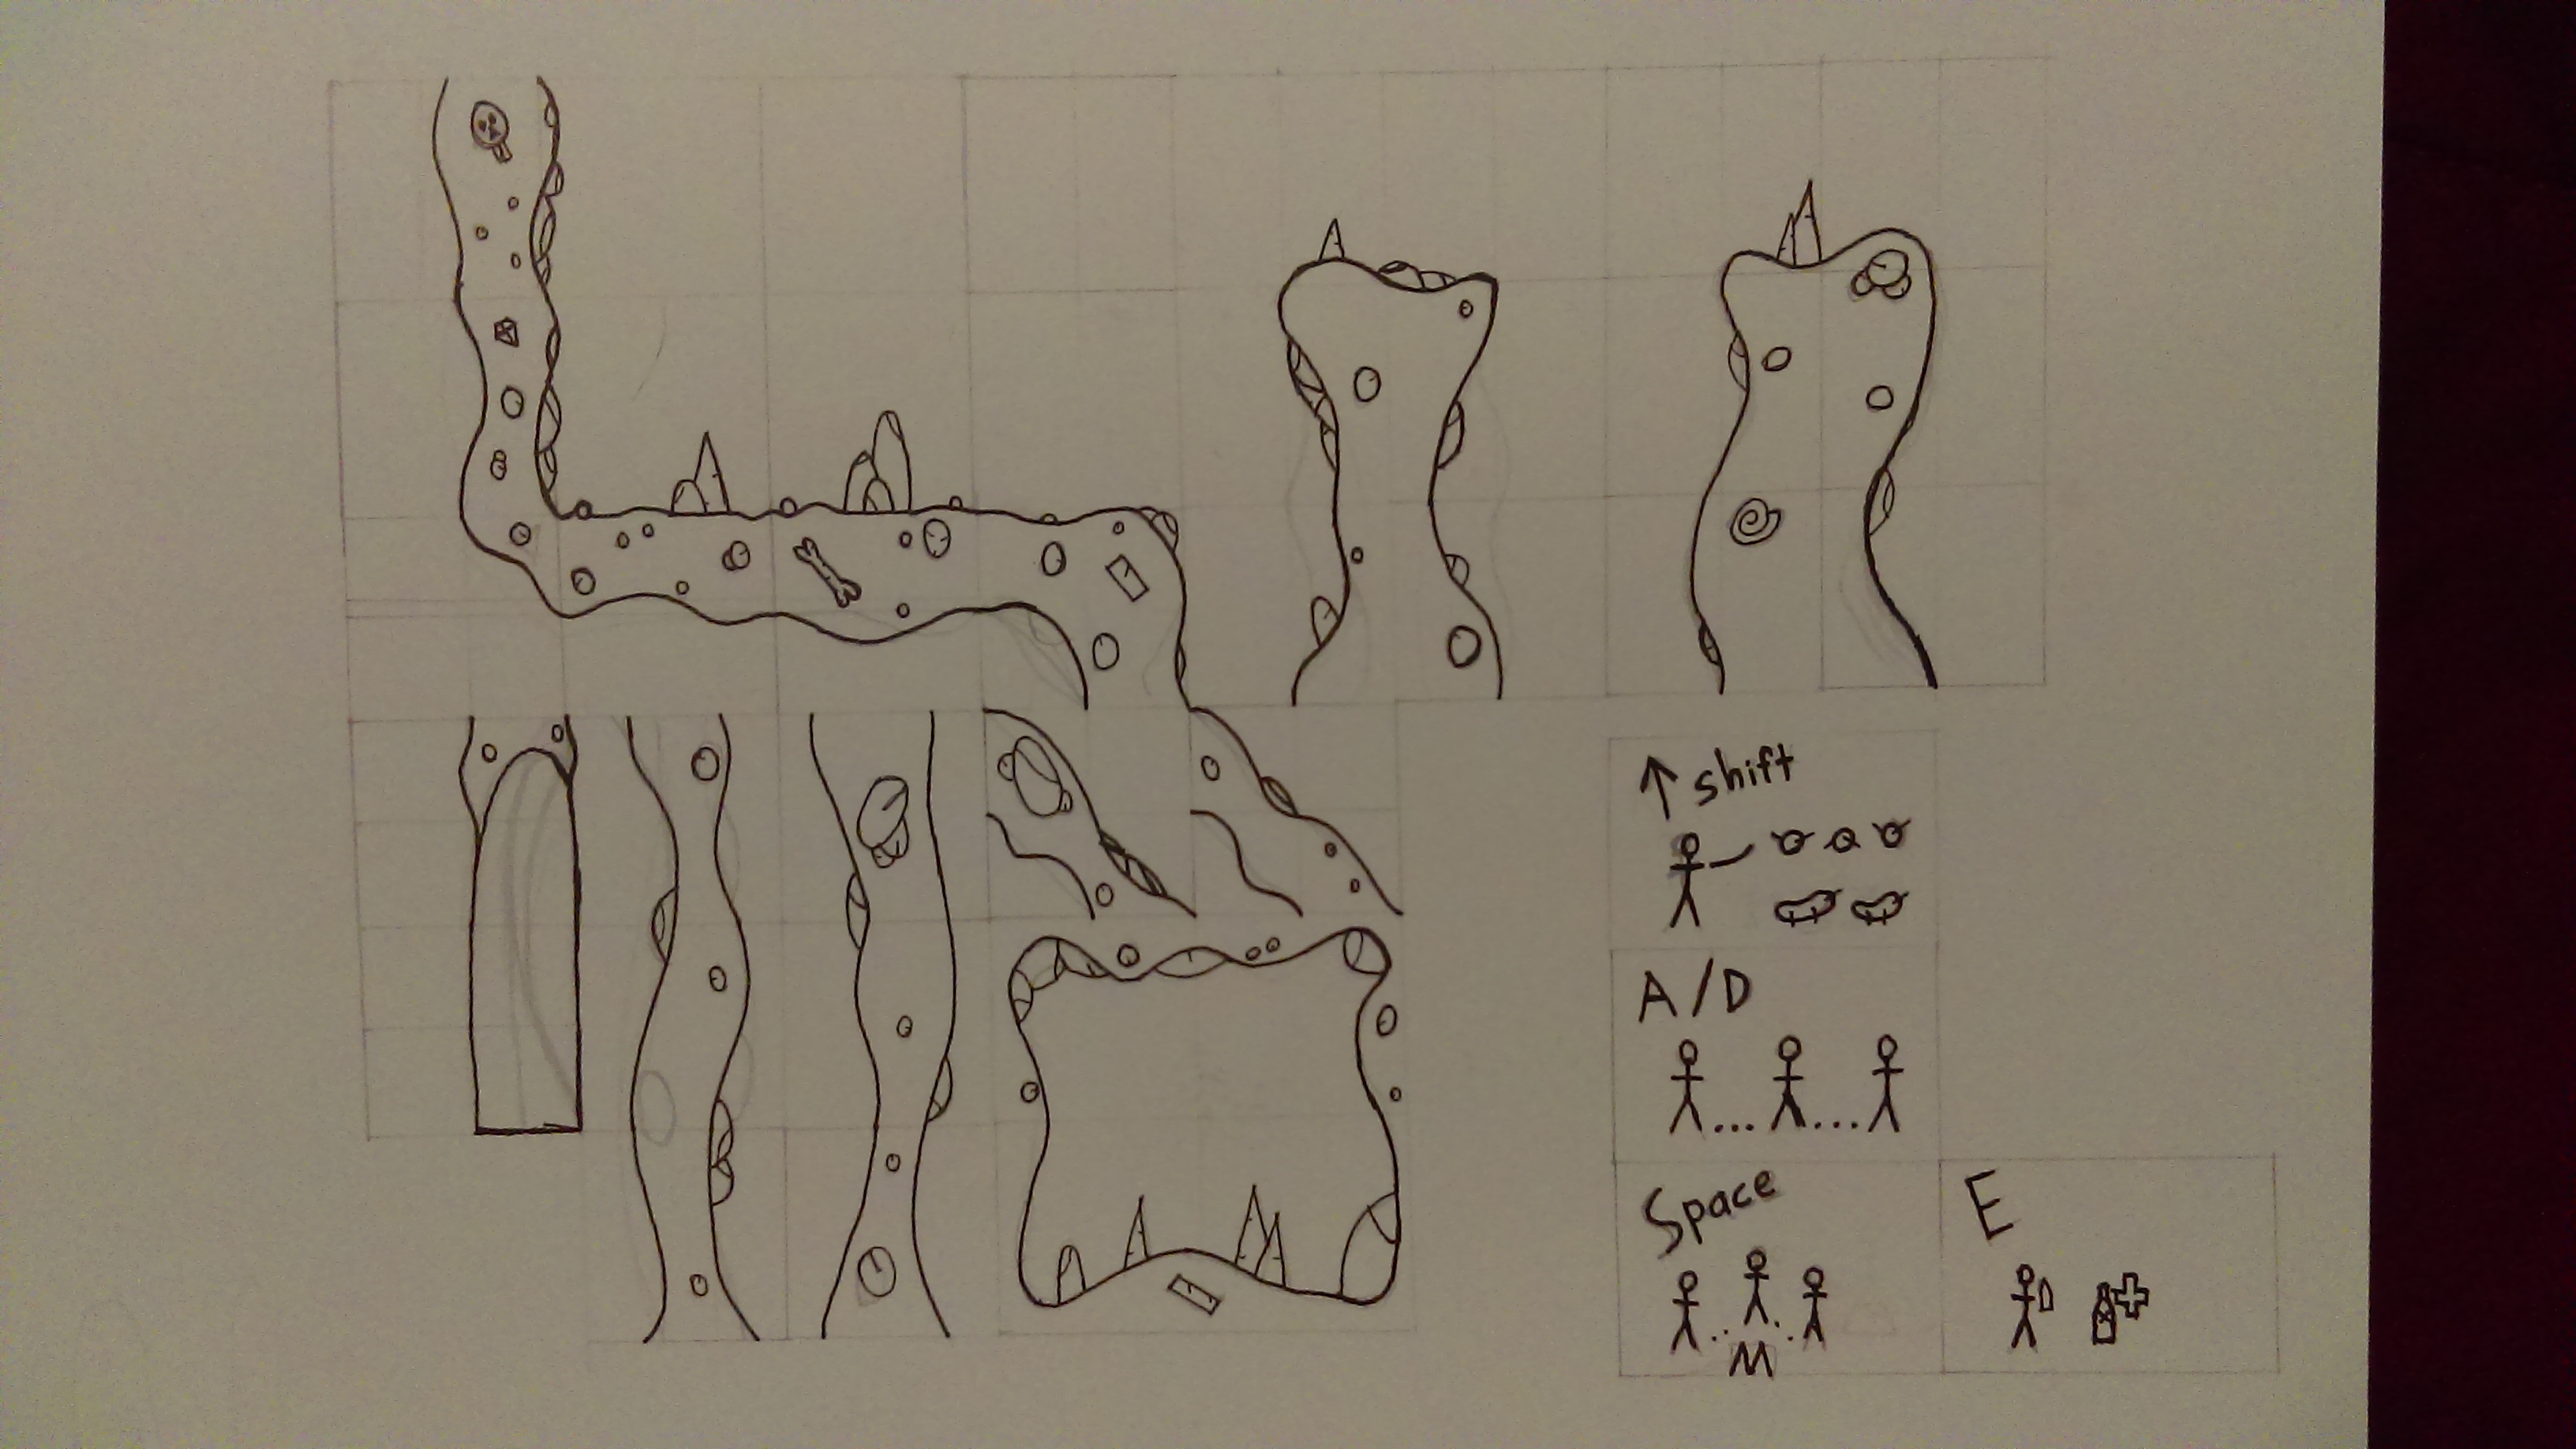 ↑ shift
A/D
Space
E